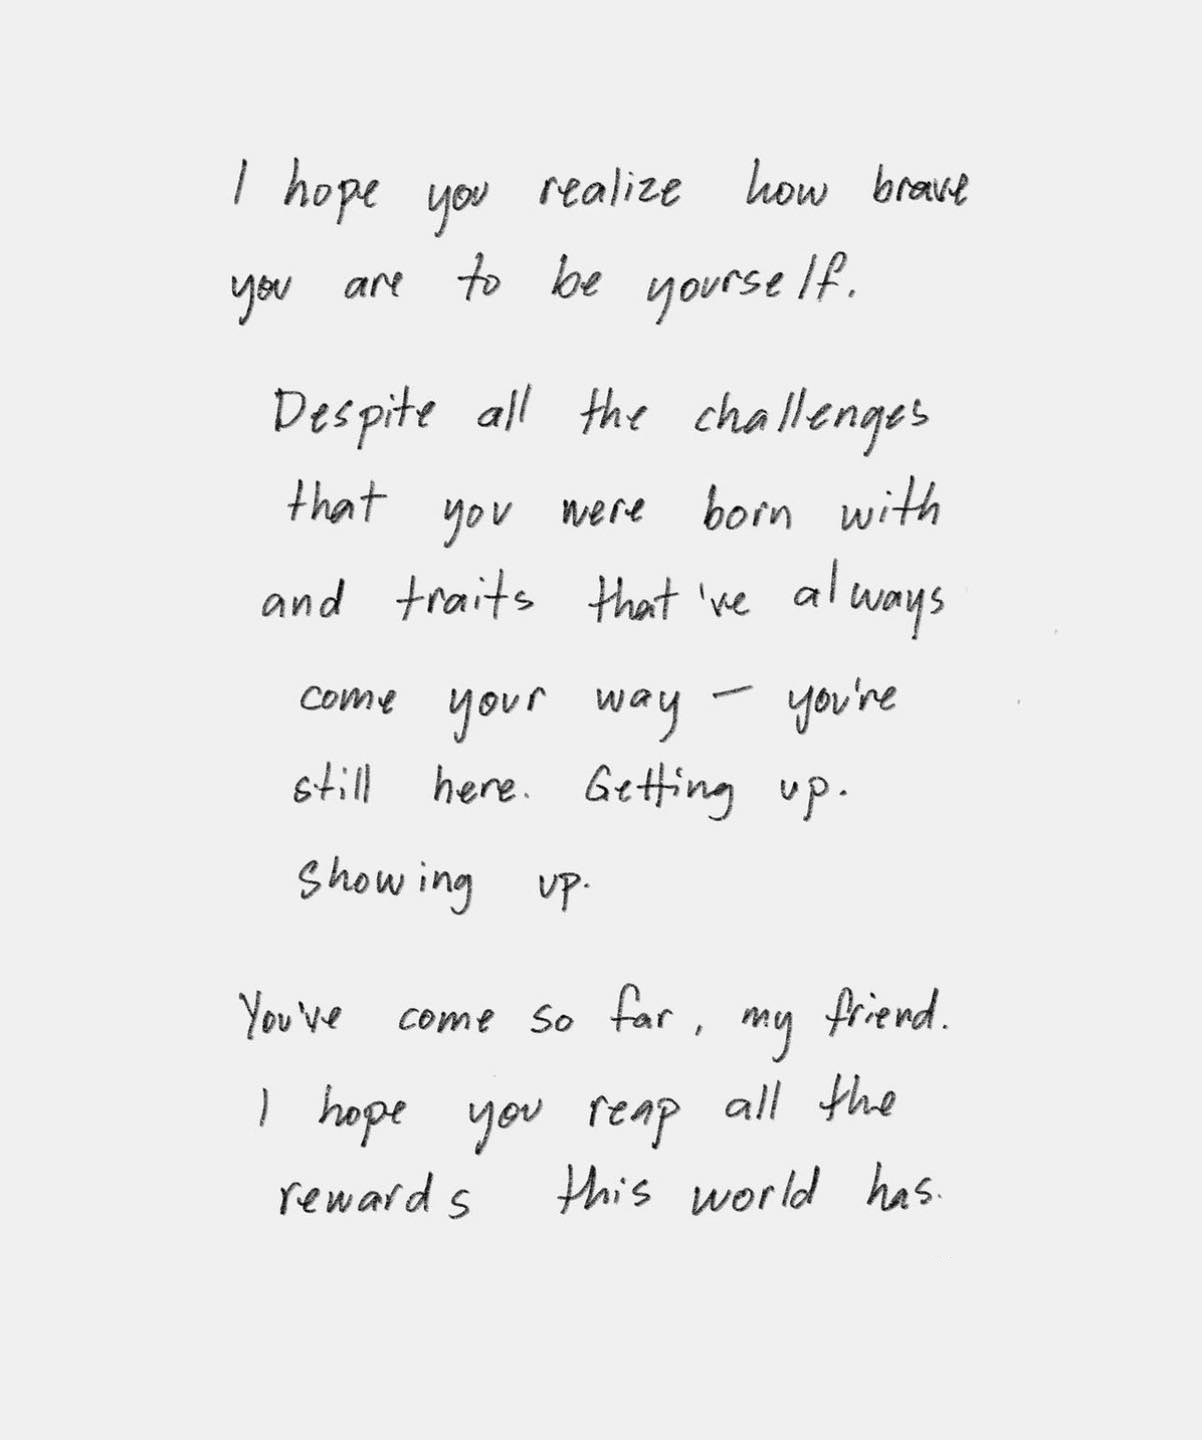 I hope you realize how brave
you are to be yourself.
Despite all the challenges
that you were born with
and traits that've always
come your way — you're
still here. Getting up.
Showing up.
You've come so far, my friend.
I hope you reap all the
rewards this world has.